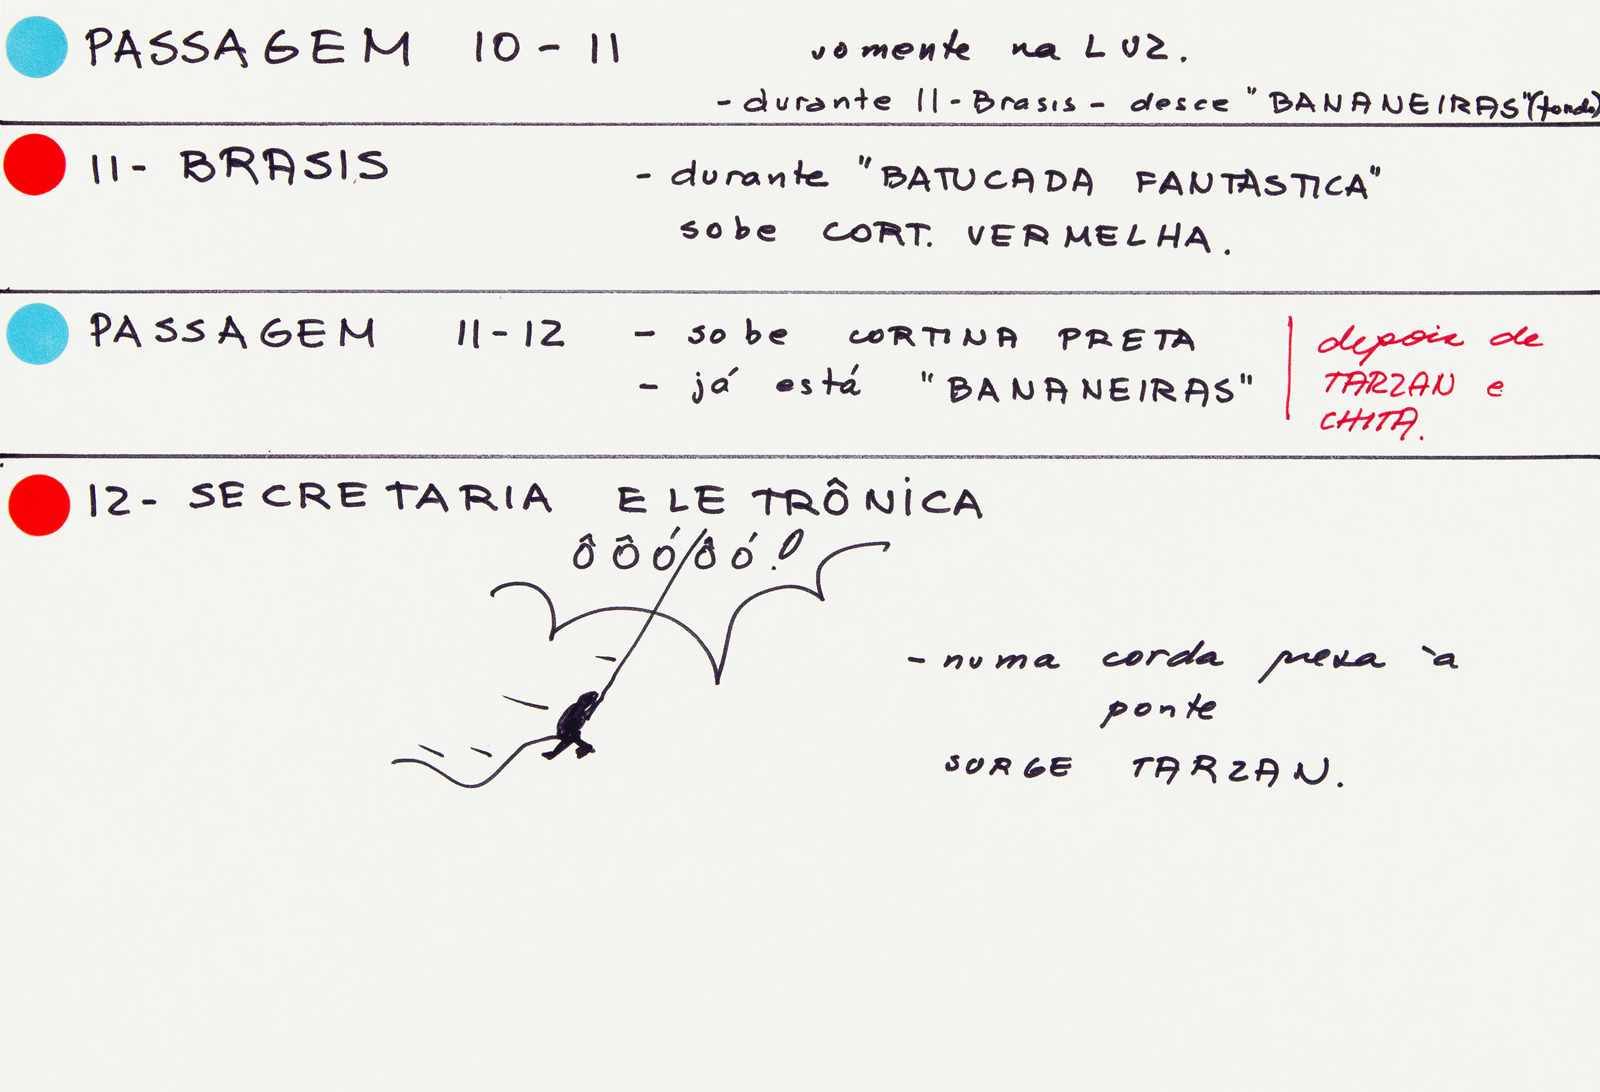 PASSAGEM 10-11
somente na LUZ.
- durante 11 - Brasis - desce "BANANEIRAS" (fundo)
11- BRASIS
- durante "BATUCADA FANTÁSTICA"
sobe CORT. VERMELHA.
PASSAGEM 11-12
- sobe CORTINA PRETA
- já está "BANANEIRAS"
depois de
TARZAN e
CHITA.
12- SECRETARIA ELETRÔNICA
ÔÔÓÔÓ!
- numa corda presa à
ponte
SURGE TARZAN.